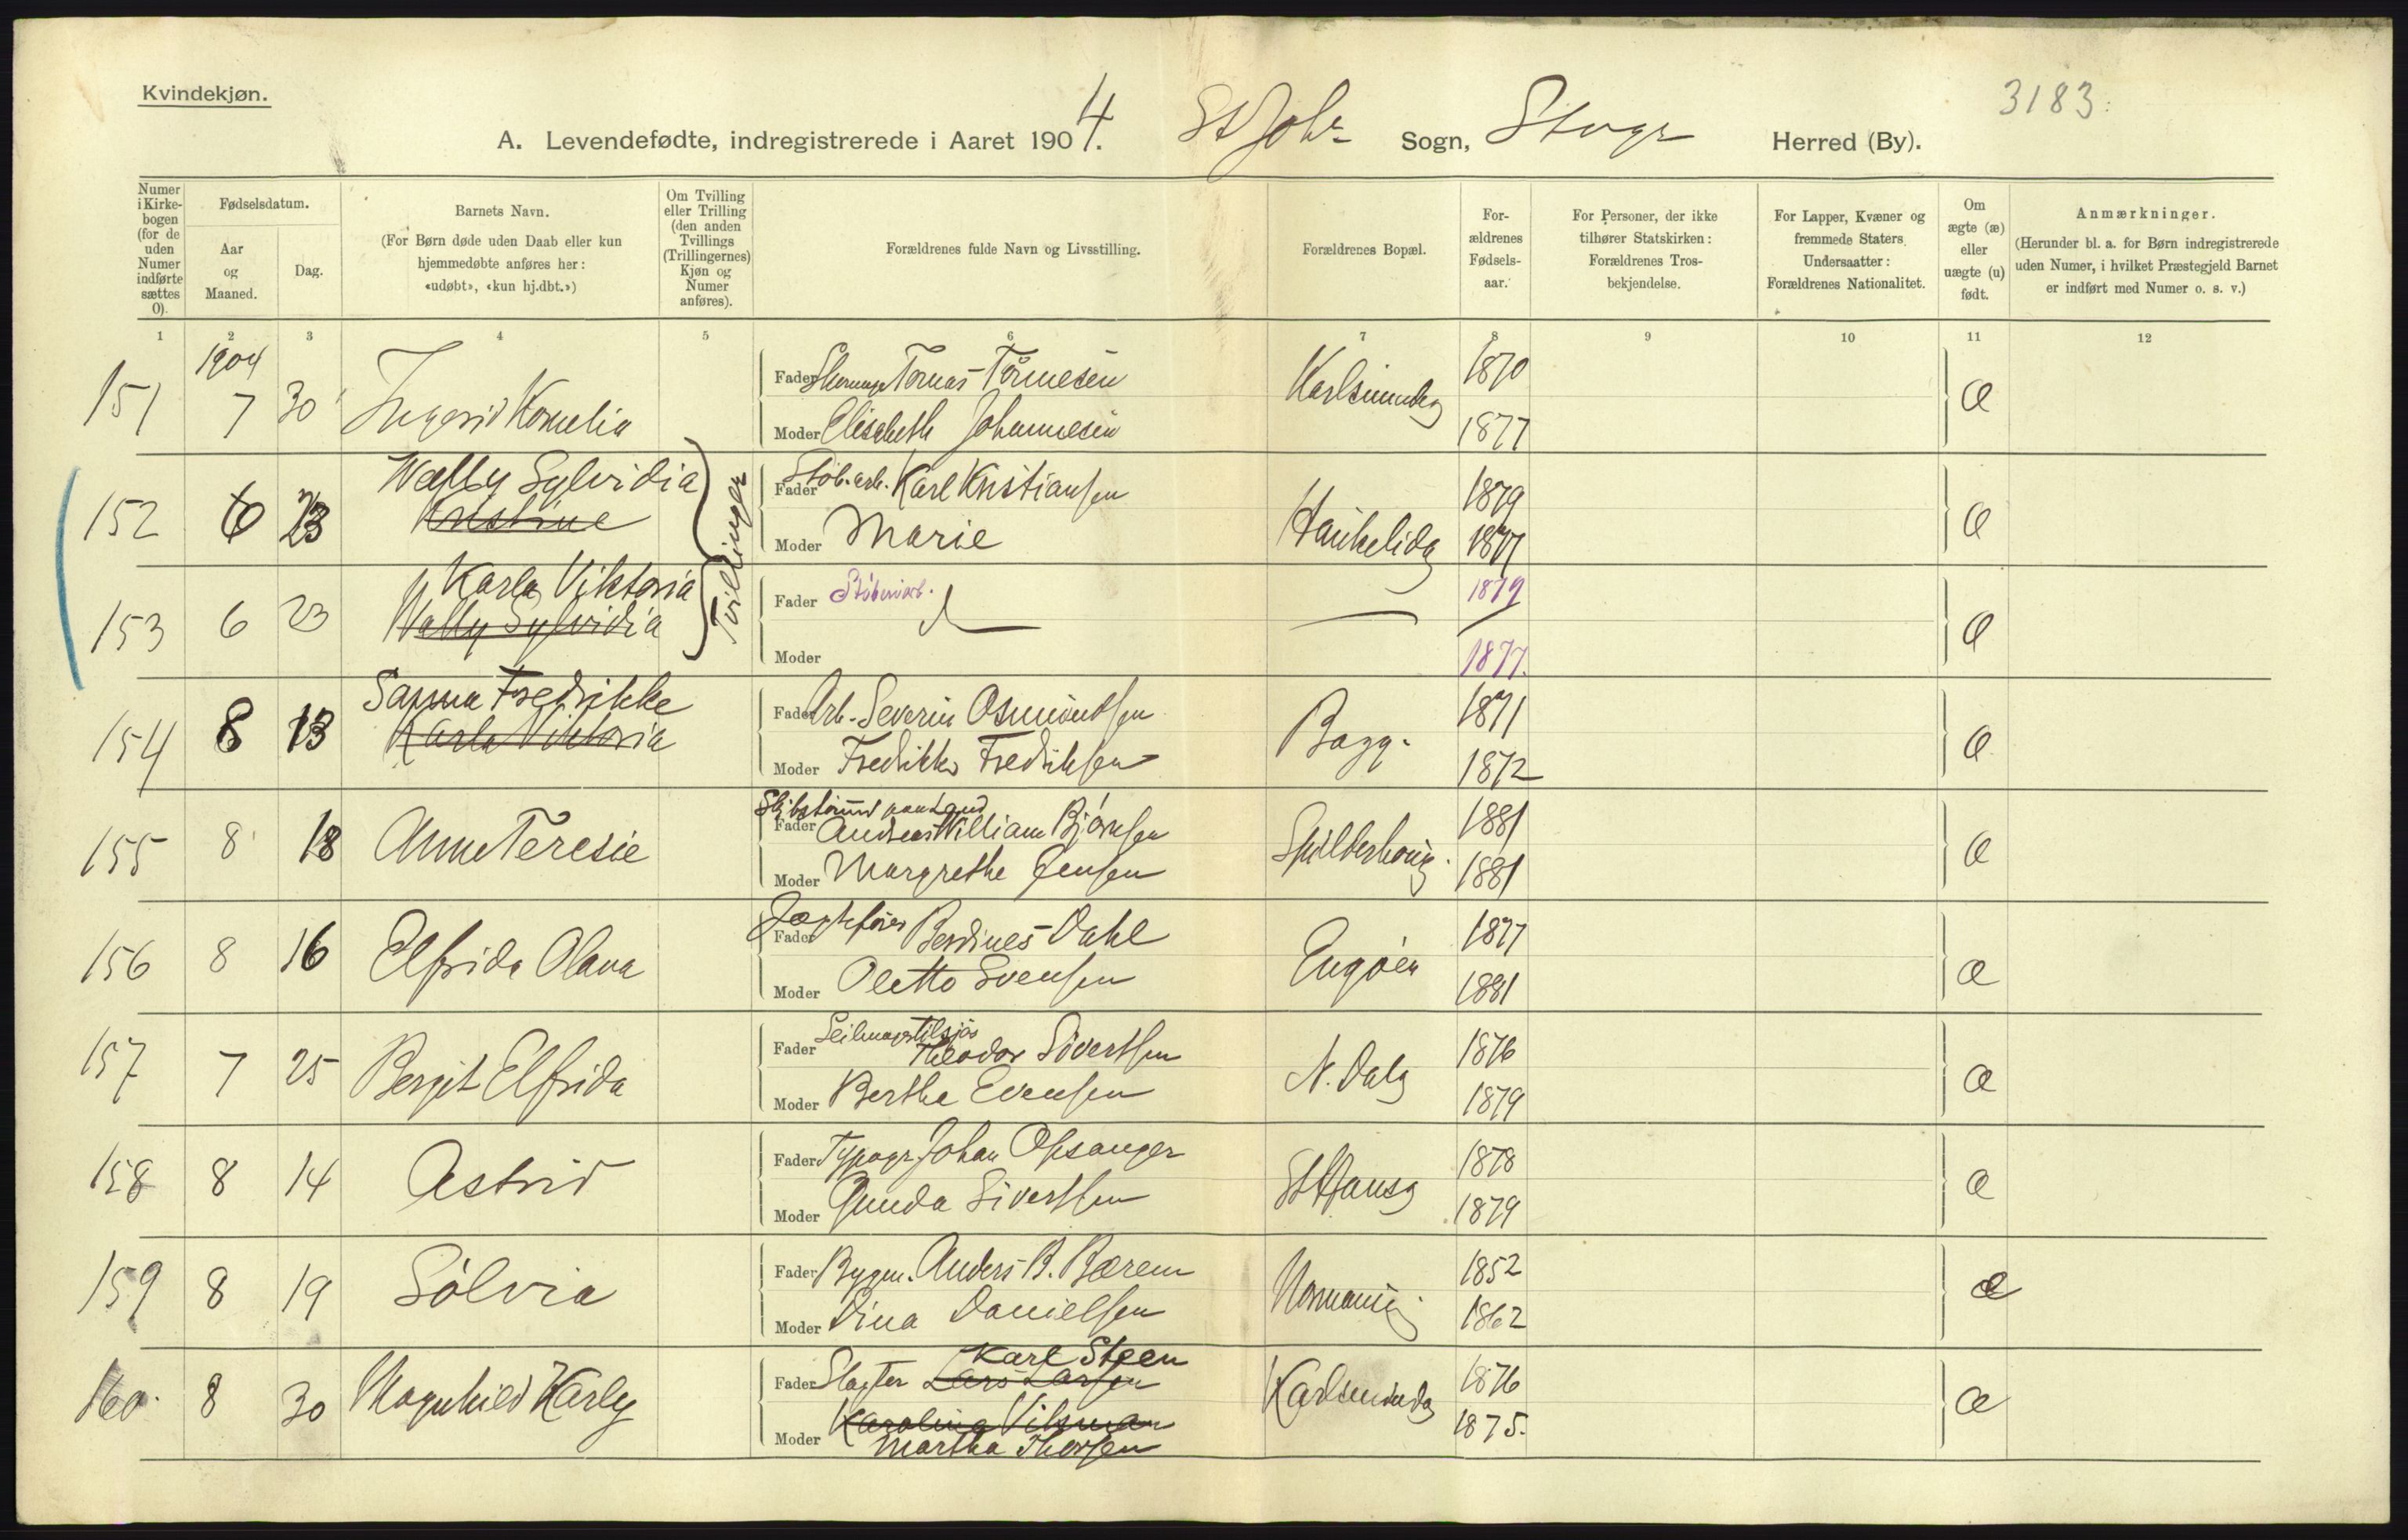 Kvindekjøn.
3183.
A. Levendefødte, indregistrerede i Aaret 1904. St Johs Sogn, Stvgr Herred (By).
Numer i Kirke-bogen (for de uden Numer indførte sættes 0).
Fødselsdatum.
Aar og Maaned.
Dag.
Barnets Navn.
(For Børn døde uden Daab eller kun hjemmedøbte anføres her: «udøbt», «kun hj.dbt.»)
Om Tvilling eller Trilling (den anden Tvillings (Trillingernes) Kjøn og Numer anføres).
Forældrenes fulde Navn og Livsstilling.
Forældrenes Bopæl.
For-ældrenes Fødsels-aar.
For Personer, der ikke tilhører Statskirken: Forældrenes Tros-bekjendelse.
For Lapper, Kvæner og fremmede Staters Undersaatter: Forældrenes Nationalitet.
Om ægte (æ) eller uægte (u) født.
Anmærkninger.
(Herunder bl. a. for Børn indregistrerede uden Numer, i hvilket Præstegjeld Barnet er indført med Numer o. s. v.)
1 2 3 4 5 6 7 8 9 10 11 12
1904
151 7 30 Ingerid Kornelia Fader Tomas Tönnesen Karlsmindeg 1870 æ
Moder Elisabeth Johannesen 1877
152 6 23 Wally Sylvidia Tvillinger Fader Stöb. arb. Karl Kristiansen Haukelidg 1879 æ
Kristine Moder Marie 1877
153 6 23 Karla Viktoria Fader Stöberiarb. 1879 æ
Wally Sylvidia Moder 1877.
154 8 13 Sanna Fredrikke Fader Arb. Severin Osmundsen Bagg. 1871 æ
Karla Viktoria Moder Fredrikke Fredriksen 1872
155 8 18 Anne Teresie Fader Skibstömmermand paa Land Andreas William Björnsen 1881 æ
Moder Margrethe Jensen 1881
156 8 16 Elfrida Olava Fader Jægtefører Berdines Dahl Engöen 1877 æ
Moder Olette Svensen 1881
157 7 25 Bergit Elfrida Fader Seilmager tilsjös Theodor Sivertsen N. Dalg 1876 æ
Moder Berthe Evensen 1879
158 8 14 Astrid Fader Typogr. Johan Opsanger St Hansg 1878 æ
Moder Gunda Sivertsen 1879
159 8 19 Sólvia Fader Bygm. Anders B. Bærem Normannsg. 1852 æ
Moder Dina Danielsen 1862
160. 8 30 Magnhild Karly Fader Slagter Karl Steen Lars Larsen Karlsmindeg 1876 æ
Moder Karoline Vilsman Martha Thorsen 1875.